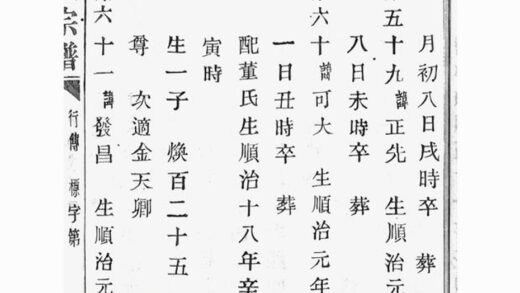 月初八日戌時卒 葬
五十九 諱正先 生順治元
八日未時卒 葬
六十 諱可大 生順治元年
一日丑時卒 葬
配董氏生順治十八年辛
寅時
生一子 煥百二十五
尊 次適金天卿
六十一 諱發昌 生順治元
宗譜 行傳 標字第